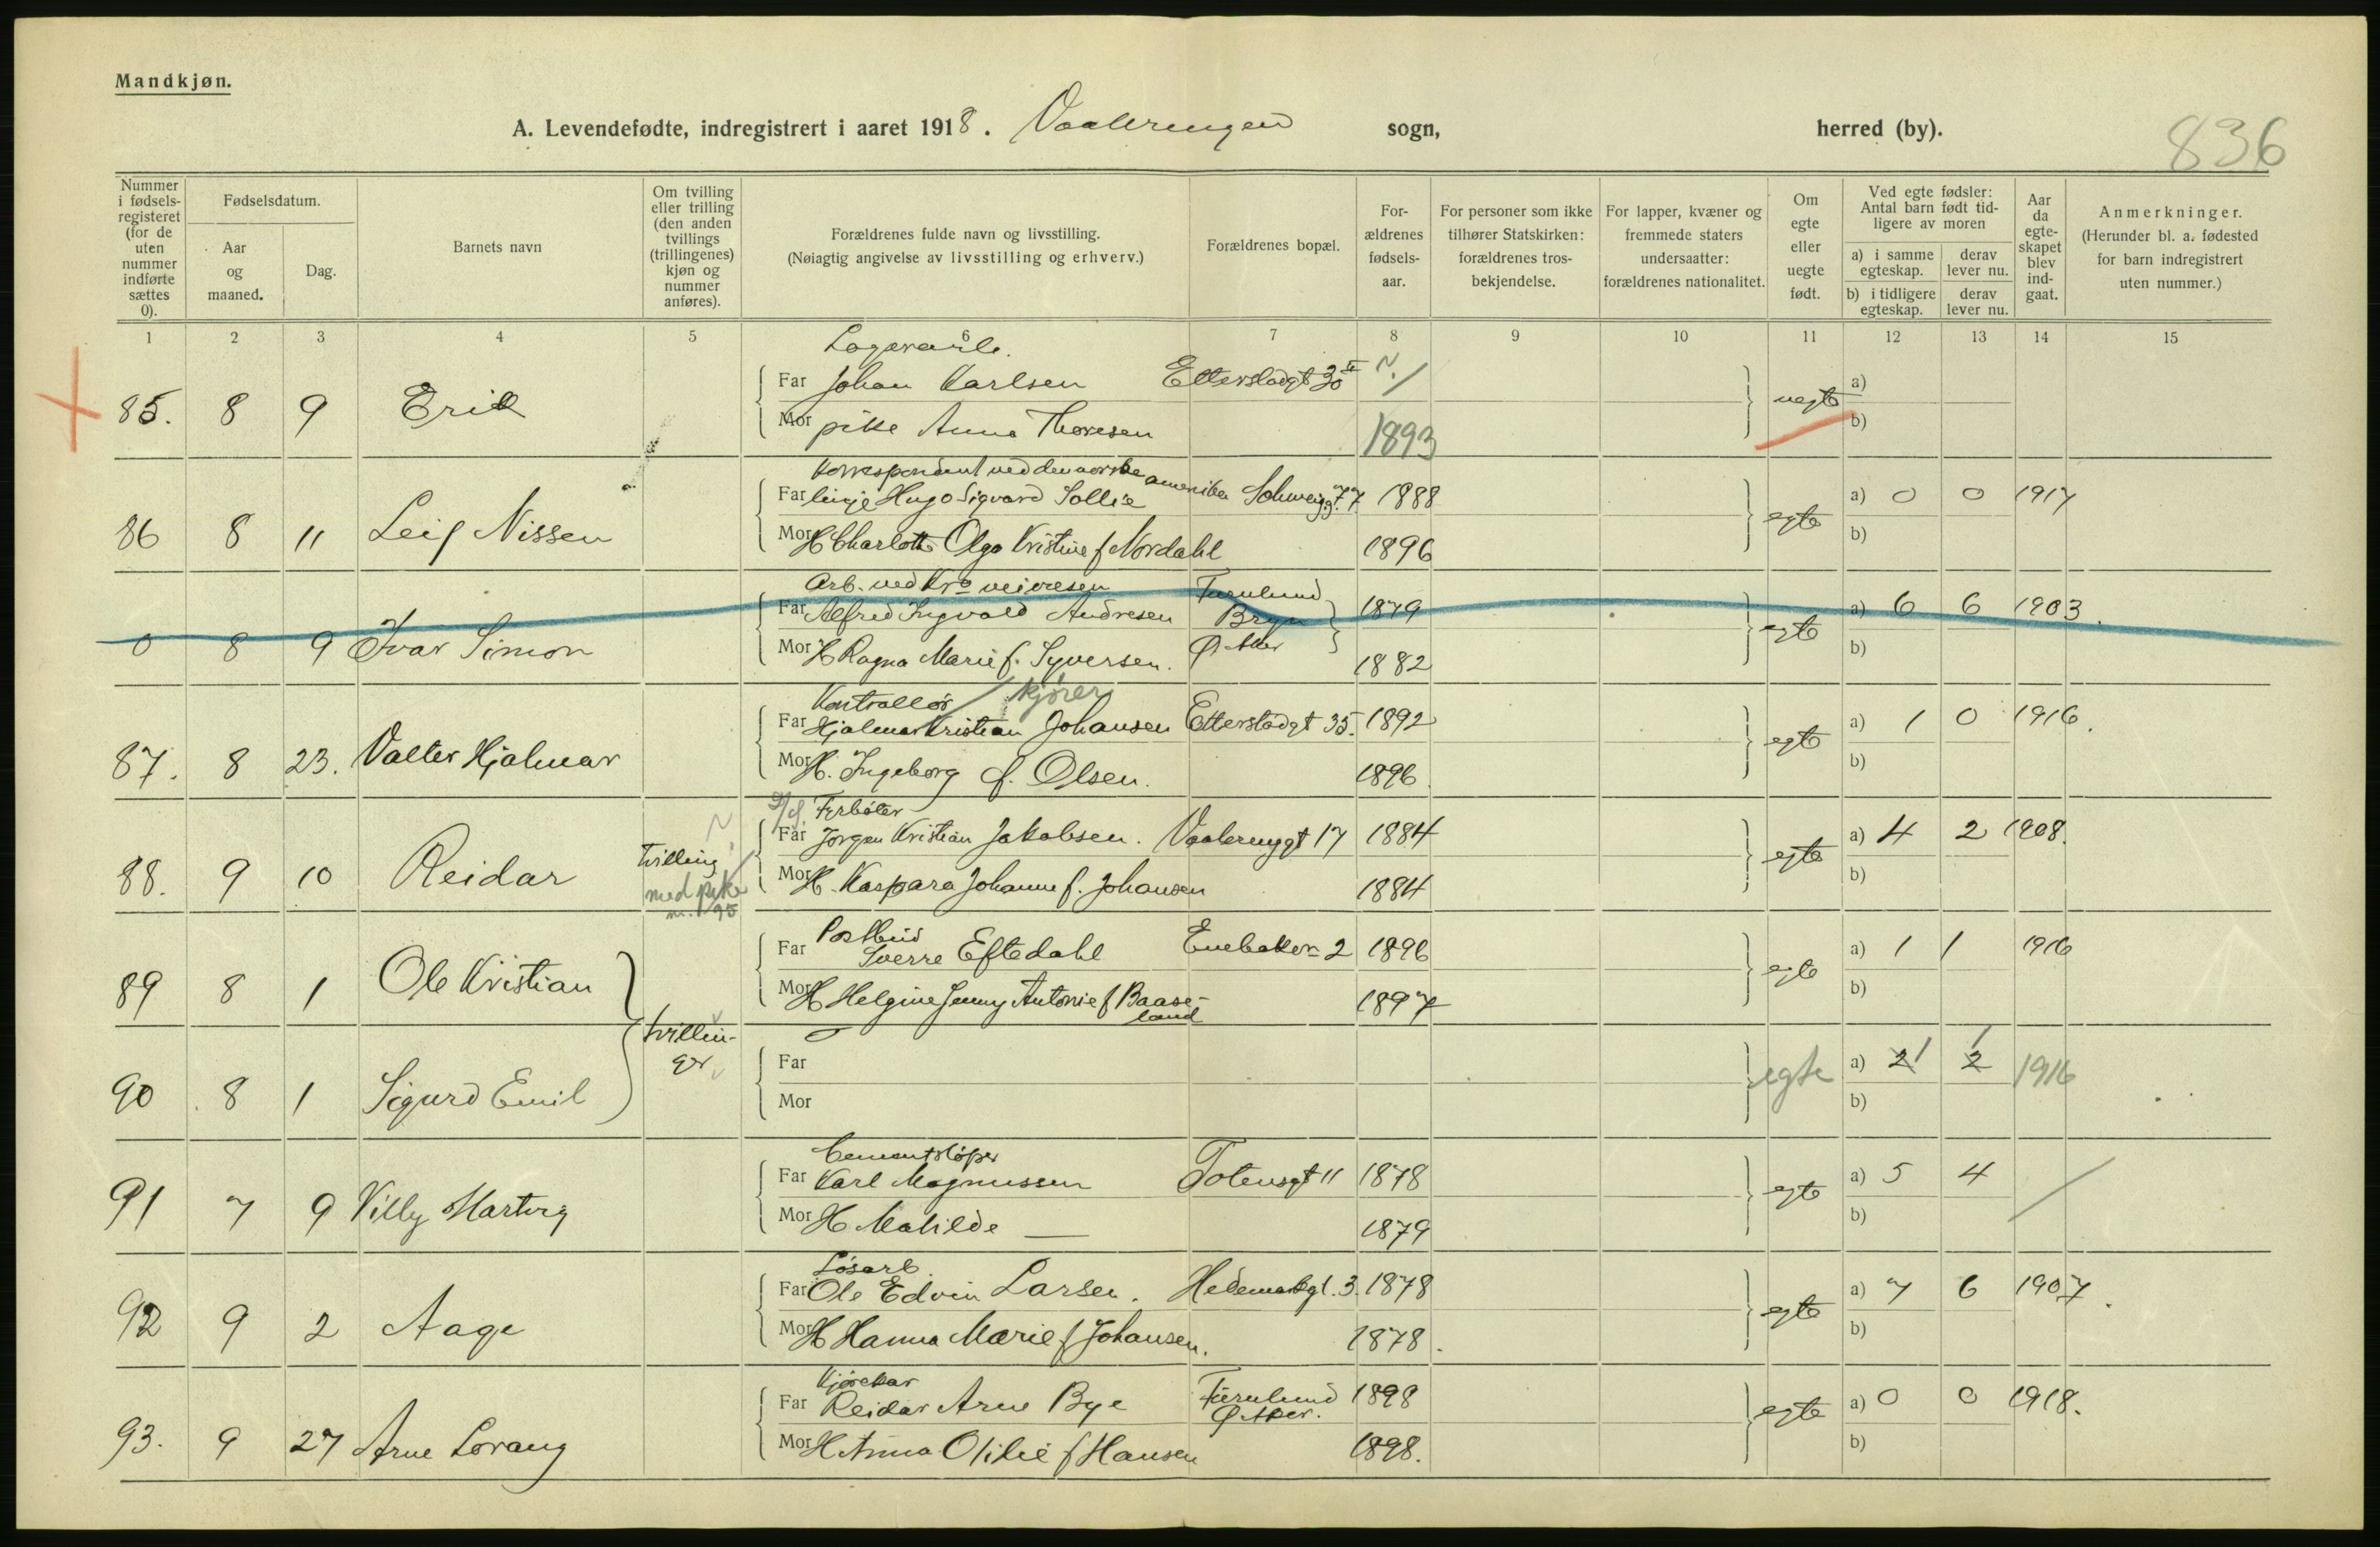 Mandkjøn.
A. Levendefødte, indregistrert i aaret 1918. Vaalerengen sogn, herred (by).
836
Nummer i fødsels-registeret (for de uten nummer indførte sættes 0).
Fødselsdatum.
Aar og maaned.
Dag.
Barnets navn
Om tvilling eller trilling (den anden tvillings (trillingenes) kjøn og nummer anføres).
Forældrenes fulde navn og livsstilling.
(Nøiagtig angivelse av livsstilling og erhverv.)
Forældrenes bopæl.
For-ældrenes fødsels-aar.
For personer som ikke tilhører Statskirken: forældrenes tros-bekjendelse.
For lapper, kvæner og fremmede staters undersaatter: forældrenes nationalitet.
Om egte eller uegte født.
Ved egte fødsler: Antal barn født tid-ligere av moren
a) i samme egteskap. derav lever nu.
b) i tidligere egteskap. derav lever nu.
Aar da egte-skapet blev ind-gaat.
Anmerkninger.
(Herunder bl. a. fødested for barn indregistrert uten nummer.)
1 2 3 4 5 6 7 8 9 10 11 12 13 14 15
85. 8 9 Erik
Far Johan Karlsen Etterstadgt 30
Mor pike Anna Thoresen 1893
uegte a) b)
Korrespondent ved den norske amerika
86 8 11 Leif Nissen
Far linje Hugo Sigvard Sollie Schweigg. 77 1888
Mor H Charlotte Olga Kristine f Nordahl 1896
egte a) 0 0 1917
b)
Arb. ved Kra veivesen Furulund
0 8 9 Ivar Simon
Far Alfred Ingvald Andresen Bryn 1879
Mor H Ragna Marie f. Syversen. Ø Aker 1882
egte a) 6 6 1903.
b)
Kontrollør kjører
87. 8 23. Valter Hjalmar
Far Hjalmar Kristian Johansen Etterstadgt 35. 1892
Mor H. Ingeborg f. Olsen. 1896
egte a) 1 0 1916.
b)
Fyrbøter
88. 9 10 Reidar tvilling med pike nr. 95
Far Jørgen Kristian Jakobsen. Vaalerenggt 17 1884
Mor H. Kaspara Johanne f. Johansen 1884
egte a) 4 2 1908.
b)
Postbud
89 8 1 Ole Kristian
Far Sverre Eftedahl Enebakv 2 1896
Mor H Helgine Jenny Antonie f Baase-
land 1897
egte a) 1 1 1916
b)
90 8 1 Sigurd Emil tvillin-
ger
Far
Mor
egte a) 2 1 2 1 1916
b)
Cementstøper
91 7 9 Villy Harterg
Far Karl Magnussen Totensgt 11 1878
Mor H Matilde — 1879
egte a) 5 4
b)
Løsarb.
92 9 2 Aage
Far Ole Edvin Larsen. Hedemarkgt. 3. 1878
Mor H Hanna Marie f Johansen. 1878.
egte a) 7 6 1907.
b)
Kjørekar
93. 9 27 Arne Lorang
Far Reidar Arne Bye Furulund Ø Aker. 1898
Mor H Anna Otilie f Hansen 1898.
egte a) 0 0 1918.
b)